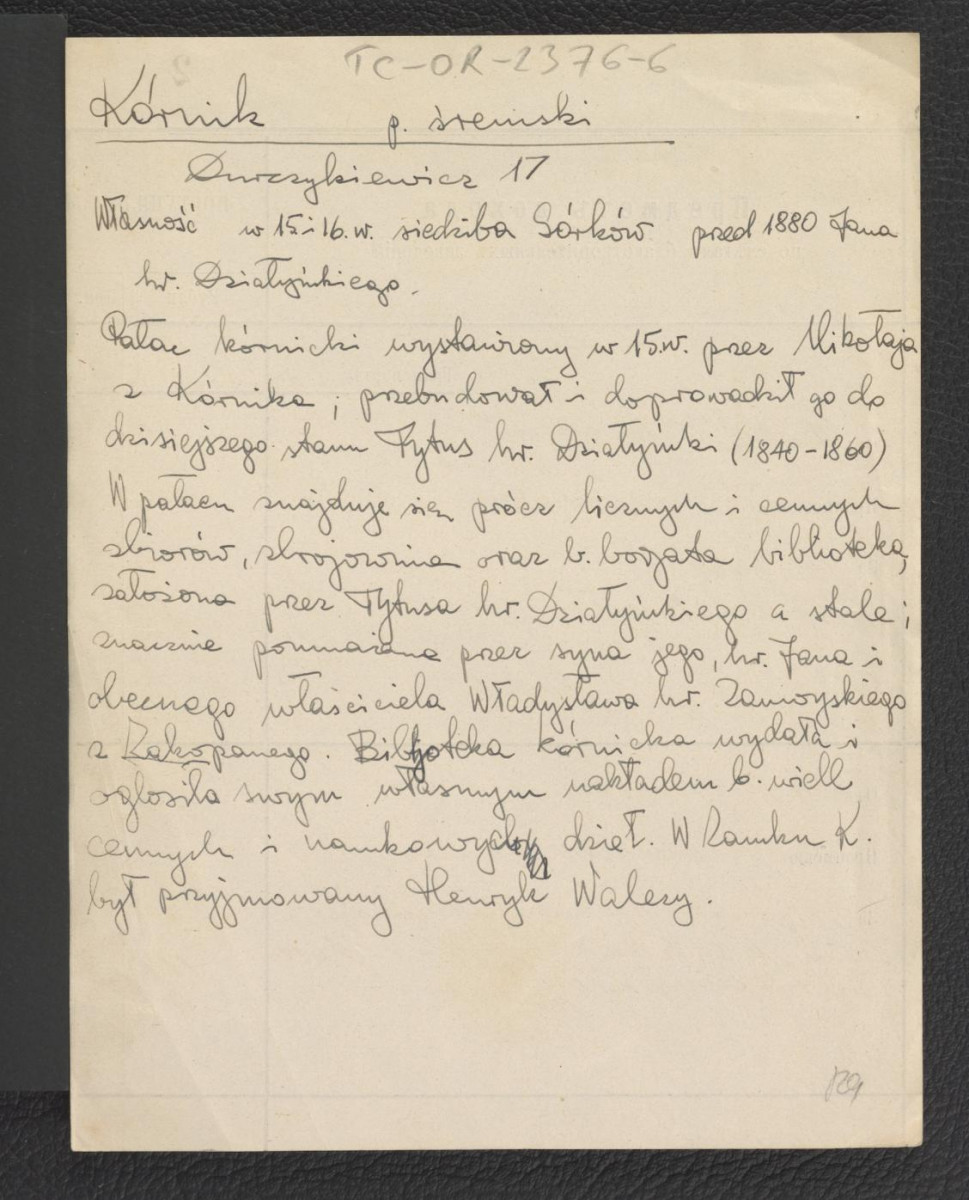 TC-OR-2376-6
Kórnik p. śremski
Durczykiewicz 17
Własność w 15 i 16. w. siedziba Górków przed 1880 Jana
hr. Działyńskiego.
Pałac kórnicki wystawiony w 15.w. przez Mikołaja
z Kórnika, przebudował i doprowadził go do
dzisiejszego stanu Tytus hr. Działyński (1840-1860)
W pałacu znajduje się prócz licznych i cennych
zbiorów, zbrojownia oraz b. bogata biblioteka,
założona przez Tytusa hr. Działyńskiego a stale i
znacznie pomnażana przez syna jego, hr. Jana i
obecnego właściciela Władysława hr. Zamoyskiego
z Zakopanego. Bibljoteka kórnicka wydała i
ogłosiła swym własnym nakładem b. wiele
cennych i naukowych dzieł. W Zamku K.
był przyjmowany Henryk Walezy.